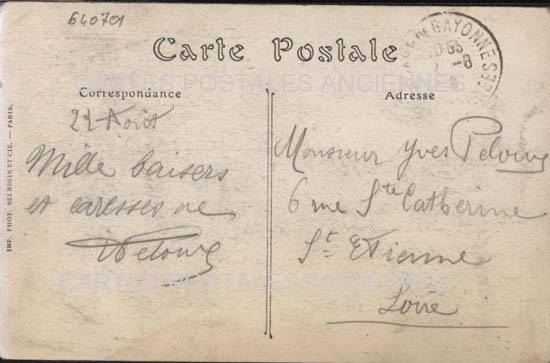 640701
Carte Postale
CARTES POSTALES ANCIENNES
Correspondance
Adresse
22 Août
Mille baisers
et caresses de
Monsieur Yves
6 rue Ste Catherine
St. Etienne
Loire
CARTES POSTALES ANCIENNES
IMP. PHOT. NEURDEIN ET CIE. — PARIS.
BAYONNE